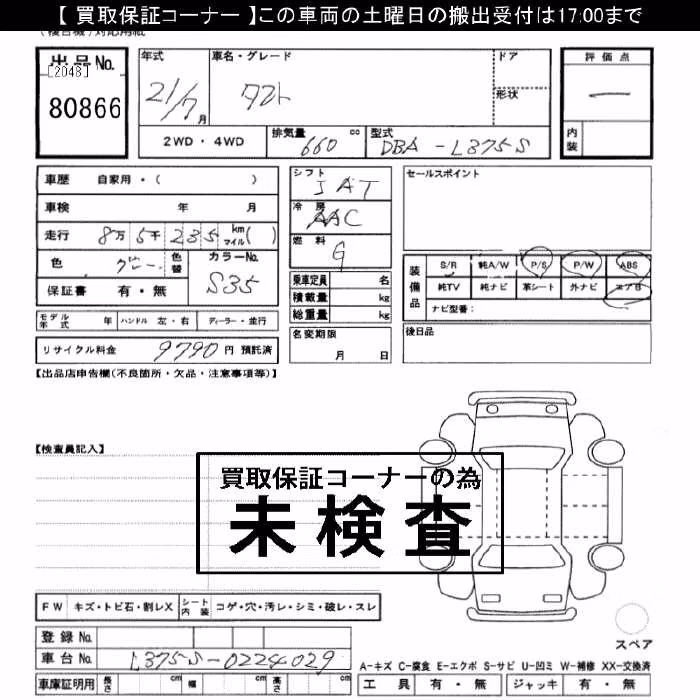 【 買取保証コーナー 】この車両の土曜日の搬出受付は17:00まで
(複合機)対応用紙
出品No.
[2048]
80866
年式 車名・グレード ドア
21/7月 タント 形状
2WD・4WD 排気量 660 cc 型式 DBA-L375S
評価点
—
内装
車歴 自家用・( )
車検 年 月
走行 8万5千235 km マイル( )
色 グレー 色替 カラーNo. S35
保証書 有・無
モデル年式 年 ハンドル 左・右 ディーラー・並行
リサイクル料金 9790 円 預託済
シフト IAT
冷房 AAC
燃料 G
乗車定員 名
積載量 kg
総重量 kg
名変期限
月 日
セールスポイント
装備品 S/R 純A/W P/S P/W ABS
純TV 純ナビ 革シート 外ナビ エアB
ナビ型番:
後日品
【出品店申告欄(不良箇所・欠品・注意事項等)】
【検査員記入】
買取保証コーナーの為
未検査
FW キズ・トビ石・割レX シート内装 コゲ・穴・汚レ・シミ・破レ・スレ
スペア
登録No.
車台No. L375S-0224029
A-キズ C-腐食 E-エクボ S-サビ U-凹ミ W-補修 XX-交換済
車庫証明用 長さ cm 幅 cm 高さ cm
工具 有・無 ジャッキ 有・無